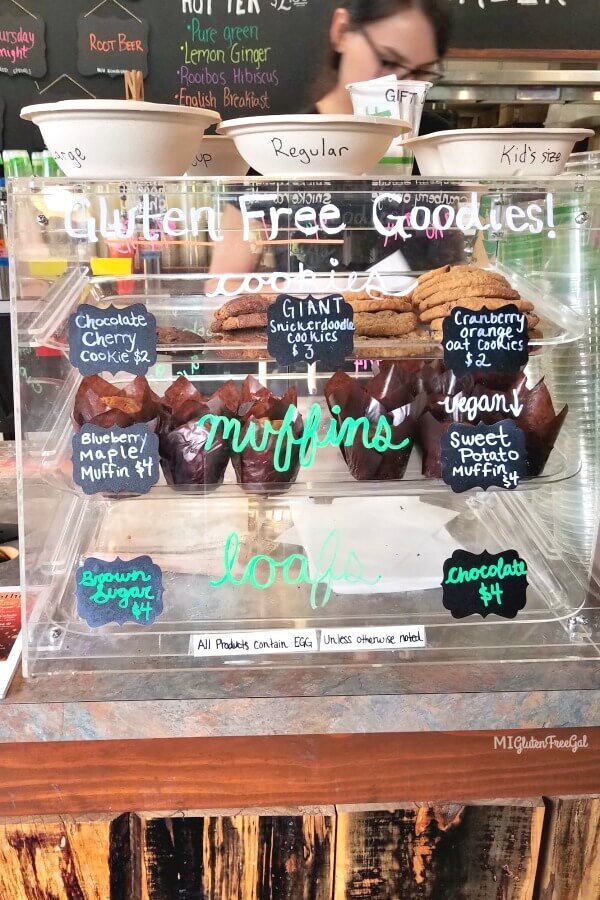 HOT TEA $2.00
ursday
night
ROOT BEER
•Pure green
•Lemon Ginger
•Rooibos Hibiscus
•English Breakfast
GIFT
arge
cup
Regular
Kid's size
Gluten Free Goodies!
cookies
Chocolate
Cherry
Cookie $2
GIANT
Snickerdoodle
cookies
$3
Cranberry
orange
oat cookies
$2
vegan↓
muffins
Blueberry
Maple
Muffin $4
Sweet
Potato
Muffin
$4
loafs
Brown
Sugar
$4
chocolate
$4
All Products Contain EGG Unless otherwise noted
MIGlutenFreeGal